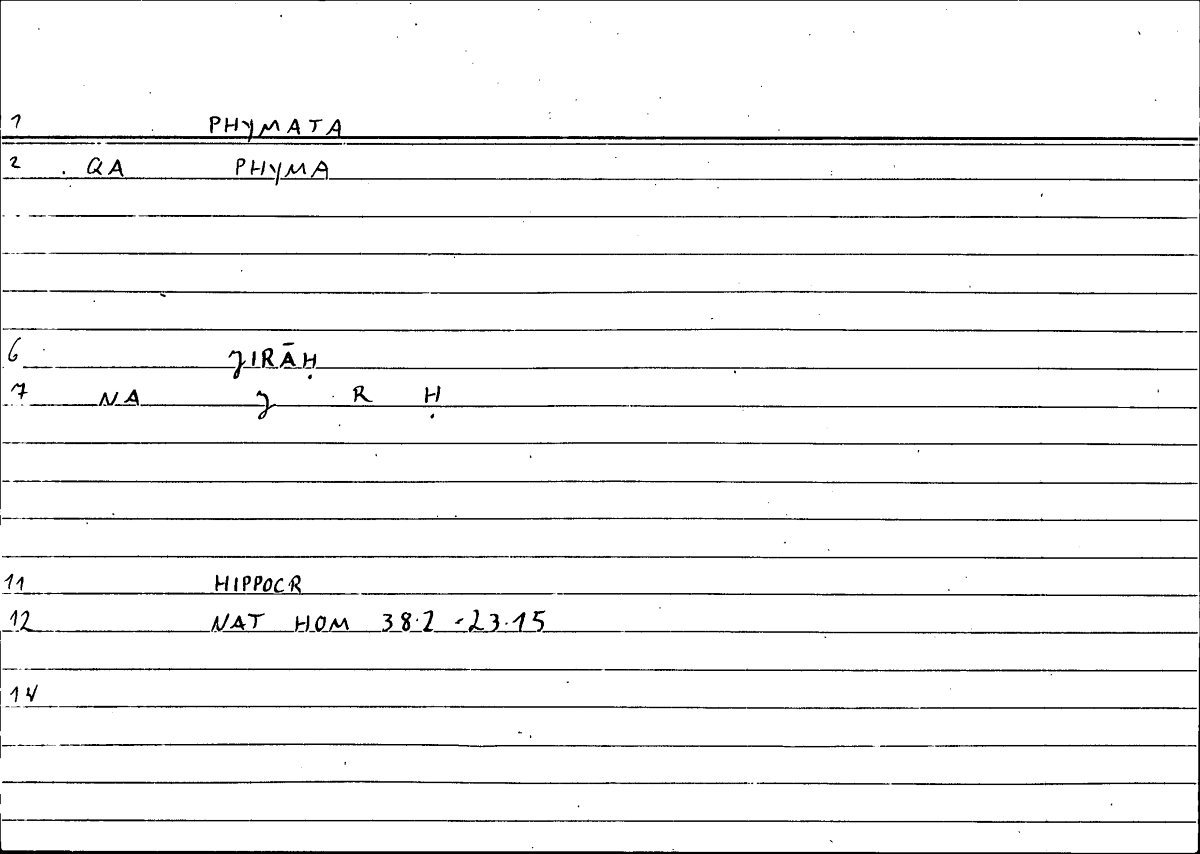 1 PHYMATA
2 QA PHYMA
6 ʒIRĀḤ
7 NA ʒ R Ḥ
11 HIPPOCR
12 NAT HOM 38.2 - 23.15
14